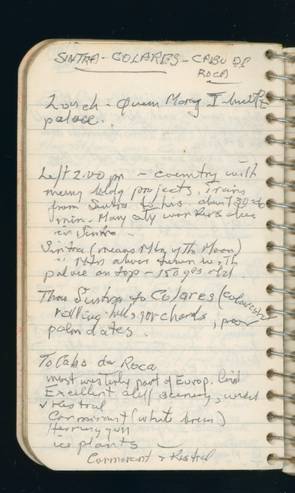 SINTRA - COLARES - CABO DE
ROCA
Lunch - Queen Mary I built
palace.
Left 2:00 pm - country with
many bldg projects. Trains
from Sintra to Lis. about
min. Many city workers live
in Sintra.
Sintra (means Mtn of the Moon)
is Mtn above town with
palace on top - 150 yrs old.
Then Sintra to Colares
rolling hills, orchards, poor
palm dates.
To Cabo da Roca
most westerly part of Europ. land
Excellent cliff scenery,
✓ Kestral
Cormorant (white breast)
Herring gull
ice plants
Cormorant & Kestral